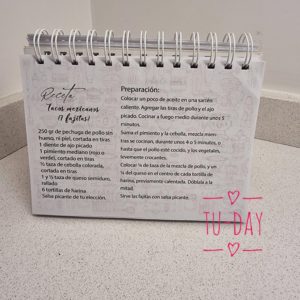 Receta
Tacos mexicanos
(7 fajitas)
250 gr de pechuga de pollo sin
hueso, ni piel, cortada en tiras
1 diente de ajo picado
1 pimiento mediano (rojo o
verde), cortado en tiras
½ taza de cebolla colorada,
cortada en tiras
1 y ½ taza de queso semiduro,
rallado
6 tortillas de harina
Salsa picante de tu elección.
Preparación:
Colocar un poco de aceite en una sartén
caliente. Agregar las tiras de pollo y el ajo
picado. Cocinar a fuego medio durante unos 5
minutos.
Suma el pimiento y la cebolla, mezcla mien-
tras se cocinan, durante unos 4 o 5 minutos, o
hasta que el pollo esté cocido y los vegetales,
levemente crocantes.
Colocar ¼ de taza de la mezcla de pollo, y un
¼ del queso en el centro de cada tortilla de
harina, previamente calentada. Dóblala a la
mitad.
Sirve las fajitas con salsa picante.
TU DAY